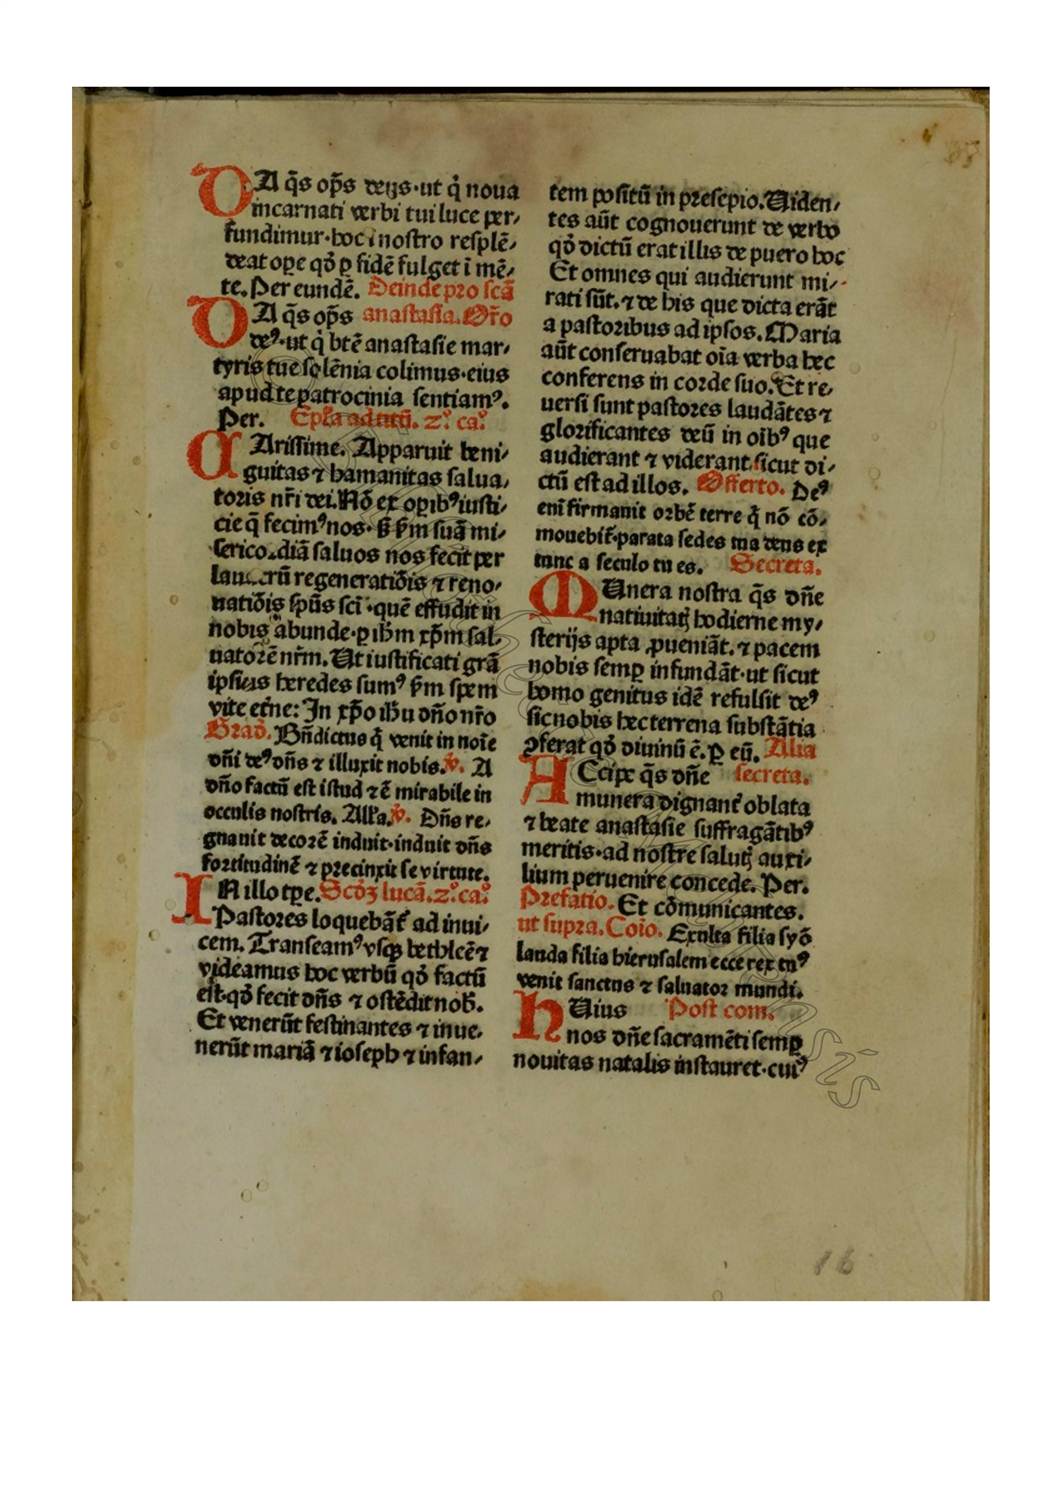 DA q̄s op̄s deus·ut q̇ noua
incarnati verbi tui luce per⸗
fundimur·hoc i nostro resplē⸗
deat ope qd̓ p fidē fulget ī mē⸗
te. Per eundē. Deinde pro scā
DA q̄s op̄s anastasia. Or̄o
de⁹·ut q̇ btē anastasie mar⸗
tyris tue solēnia colimus·eius
apud te patrocinia sentiam⁹.
Per. Ep̄la ad titū. 2.⁰ ca.⁰
CArissime. Apparuit beni⸗
gnitas ⁊ humanitas salua⸗
toris nr̄i dei. Nō ex opib⁹ iusti⸗
cie q̄ fecim⁹ nos· sꝫ ẜm suā mi⸗
sericordiā saluos nos fecit per
lauacrū regeneratiōis ⁊ reno⸗
uatiōis sp̄us sc̄i·quē effudit in
nobis abunde·p ih̄m xp̄m sal⸗
uatorē nr̄m. Ut iustificati grā
ipsius heredes sum⁹ ẜm spem
vite et̄ne: In xp̄o ih̄u dn̄o nr̄o
Grad̓. Bn̄dictus q̇ venit in noīe
dn̄i de⁹ dn̄s ⁊ illuxit nobis. v̓. A
dn̄o factū est istud ⁊ ē mirabile in
occulis nostris. All̄a. v̓. Dn̄s re⸗
gnauit decorē induit·induit dn̄s
fortitudinē ⁊ precinxit se virtute.
IN illo tpe. Scd̓ꝫ lucā. 2.⁰ ca.⁰
Pastores loquebāt̓ ad inui⸗
cem. Transeam⁹ vsqꝫ bethleē ⁊
videamus hoc verbū qd̓ factū
est·qd̓ fecit dn̄s ⁊ ostēdit nob̄.
Et venerūt festinantes ⁊ inue⸗
nerūt mariā ⁊ ioseph ⁊ infan⸗
tem positū in presepio. Uiden⸗
tes aūt cognouerunt de verbo
qd̓ dictū erat illis de puero hoc
Et omnes qui audierunt mi⸗
rati sūt. ⁊ de his que dicta erāt
a pastoribus ad ipsos. Maria
aūt conseruabat oīa verba hec
conferens in corde suo. Et re⸗
uersi sunt pastores laudātes ⁊
glorificantes deū in oīb⁹ que
audierant ⁊ viderant. sicut di⸗
ctū est ad illos. Offerto. De⁹
eni firmauit orbē terre q̇ nō cō⸗
mouebit̓·parata sedes tua deus ex
tunc a seculo tu es. Secreta.
MUnera nostra q̄s dn̄e
natiuitatꝭ hodierne my⸗
sterijs apta ꝓueniāt. ⁊ pacem
nobis semp infundāt·ut sicut
homo genitus idē refulsit de⁹
sic nobis hec terrena substātia
ꝯferat qd̓ diuinū ē. P eū. Alia
ACcipe q̄s dn̄e secreta.
munera dignant̓ oblata
⁊ beate anastasie suffragātib⁹
meritis·ad nostre salutꝭ auxi⸗
lium peruenire concede. Per.
Prefatio. Et cōmunicantes.
ut supra. Coīo. Exulta filia syō
lauda filia hierusalem ecce rex tu⁹
venit sanctus ⁊ saluator mundi.
hUius Post com.
nos dn̄e sacramēti semp
nouitas natalis instauret·cui⁹
16